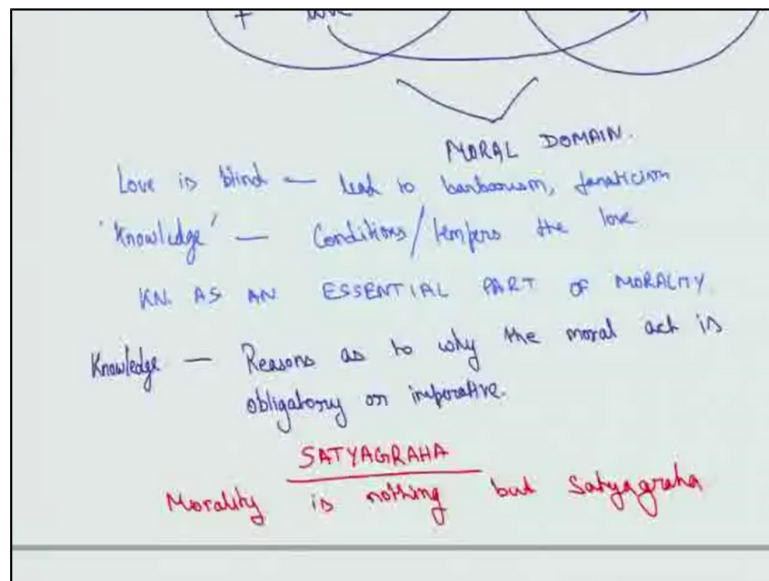 + love
MORAL DOMAIN.
Love is blind — lead to barbarism, fanaticism
'Knowledge' — Conditions/tempers the love
KN. AS AN ESSENTIAL PART OF MORALITY.
Knowledge — Reasons as to why the moral act is
obligatory or imperative.
SATYAGRAHA
Morality is nothing but Satyagraha